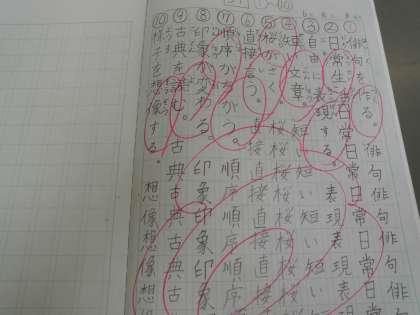 ①俳句を作る。俳句俳句
②日常生活日常日常日常
③自由に表現する。表現表現
④短い文章。短い短い
⑤桜がさく。桜桜桜
⑥直接言う。直接直接直接
⑦順序がちがう。順序順序順
⑧印象が変わる。印象印象印象
⑨古典を読む。古典古典古典古
⑩様子を想像する。想像想像想